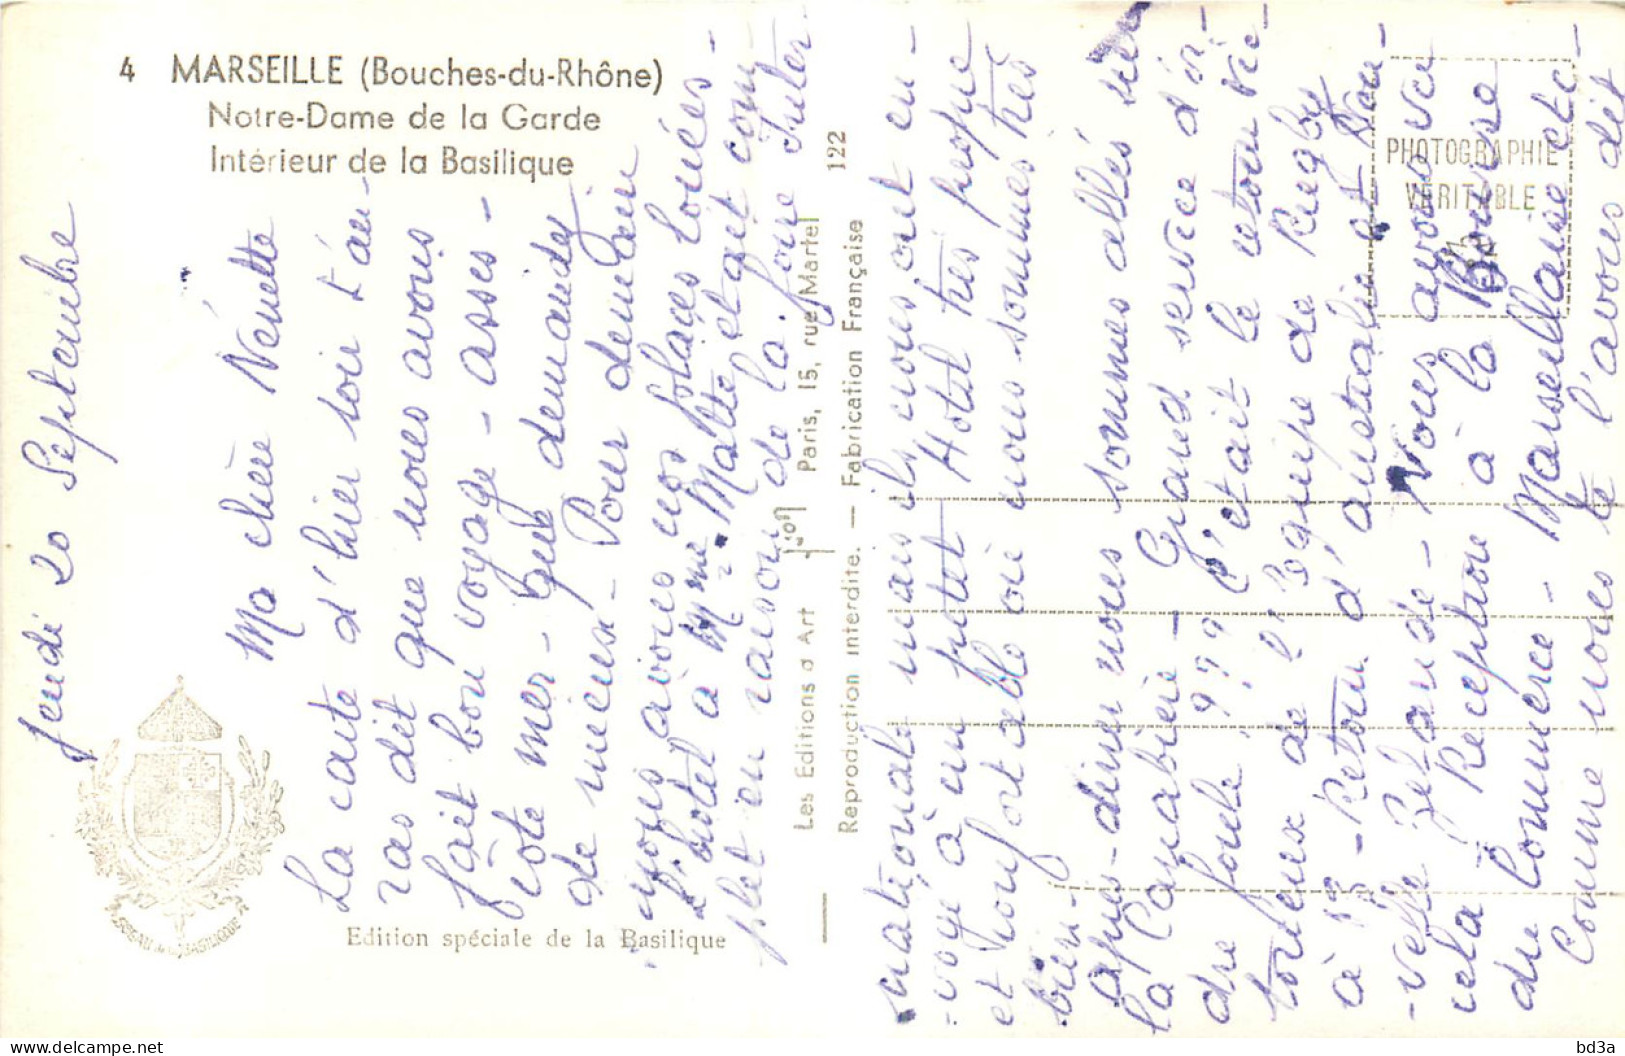 4 MARSEILLE (Bouches-du-Rhône)
Notre-Dame de la Garde
Intérieur de la Basilique
Jeudi 20 Septembre
Ma chère Nénette
La carte d'hier soir t'au-
ras dit que nous avons
fait bon voyage - asses -
côte mer - que demandez
de mieux - Pour demain
nous avons nos places louées -
L'hotel à Mme Matte était com-
plet en raison de la foire Inter-
nationale mais ils nous ont en-
-voyé à un petit Hotel très propre
et confortable où nous sommes très
bien -
après-diner nous sommes allés sur
la Canabière - Grand service d'or-
dre foule ??? C'était le retour vic-
torieux de l'Equipe de Rugby
à 13 - Retour d'australie et Nou-
-velle Zelande - Nous avons vu
cela - Reception à la Bourse
du Commerce - Marseillaise etc -
Comme nous te l'avons dit
Les Editions d'Art
Paris, 15, rue Martel
122
Reproduction Interdite. — Fabrication Française
PHOTOGRAPHIE
VERITABLE
BASILIQUE
Edition spéciale de la Basilique
bd3a